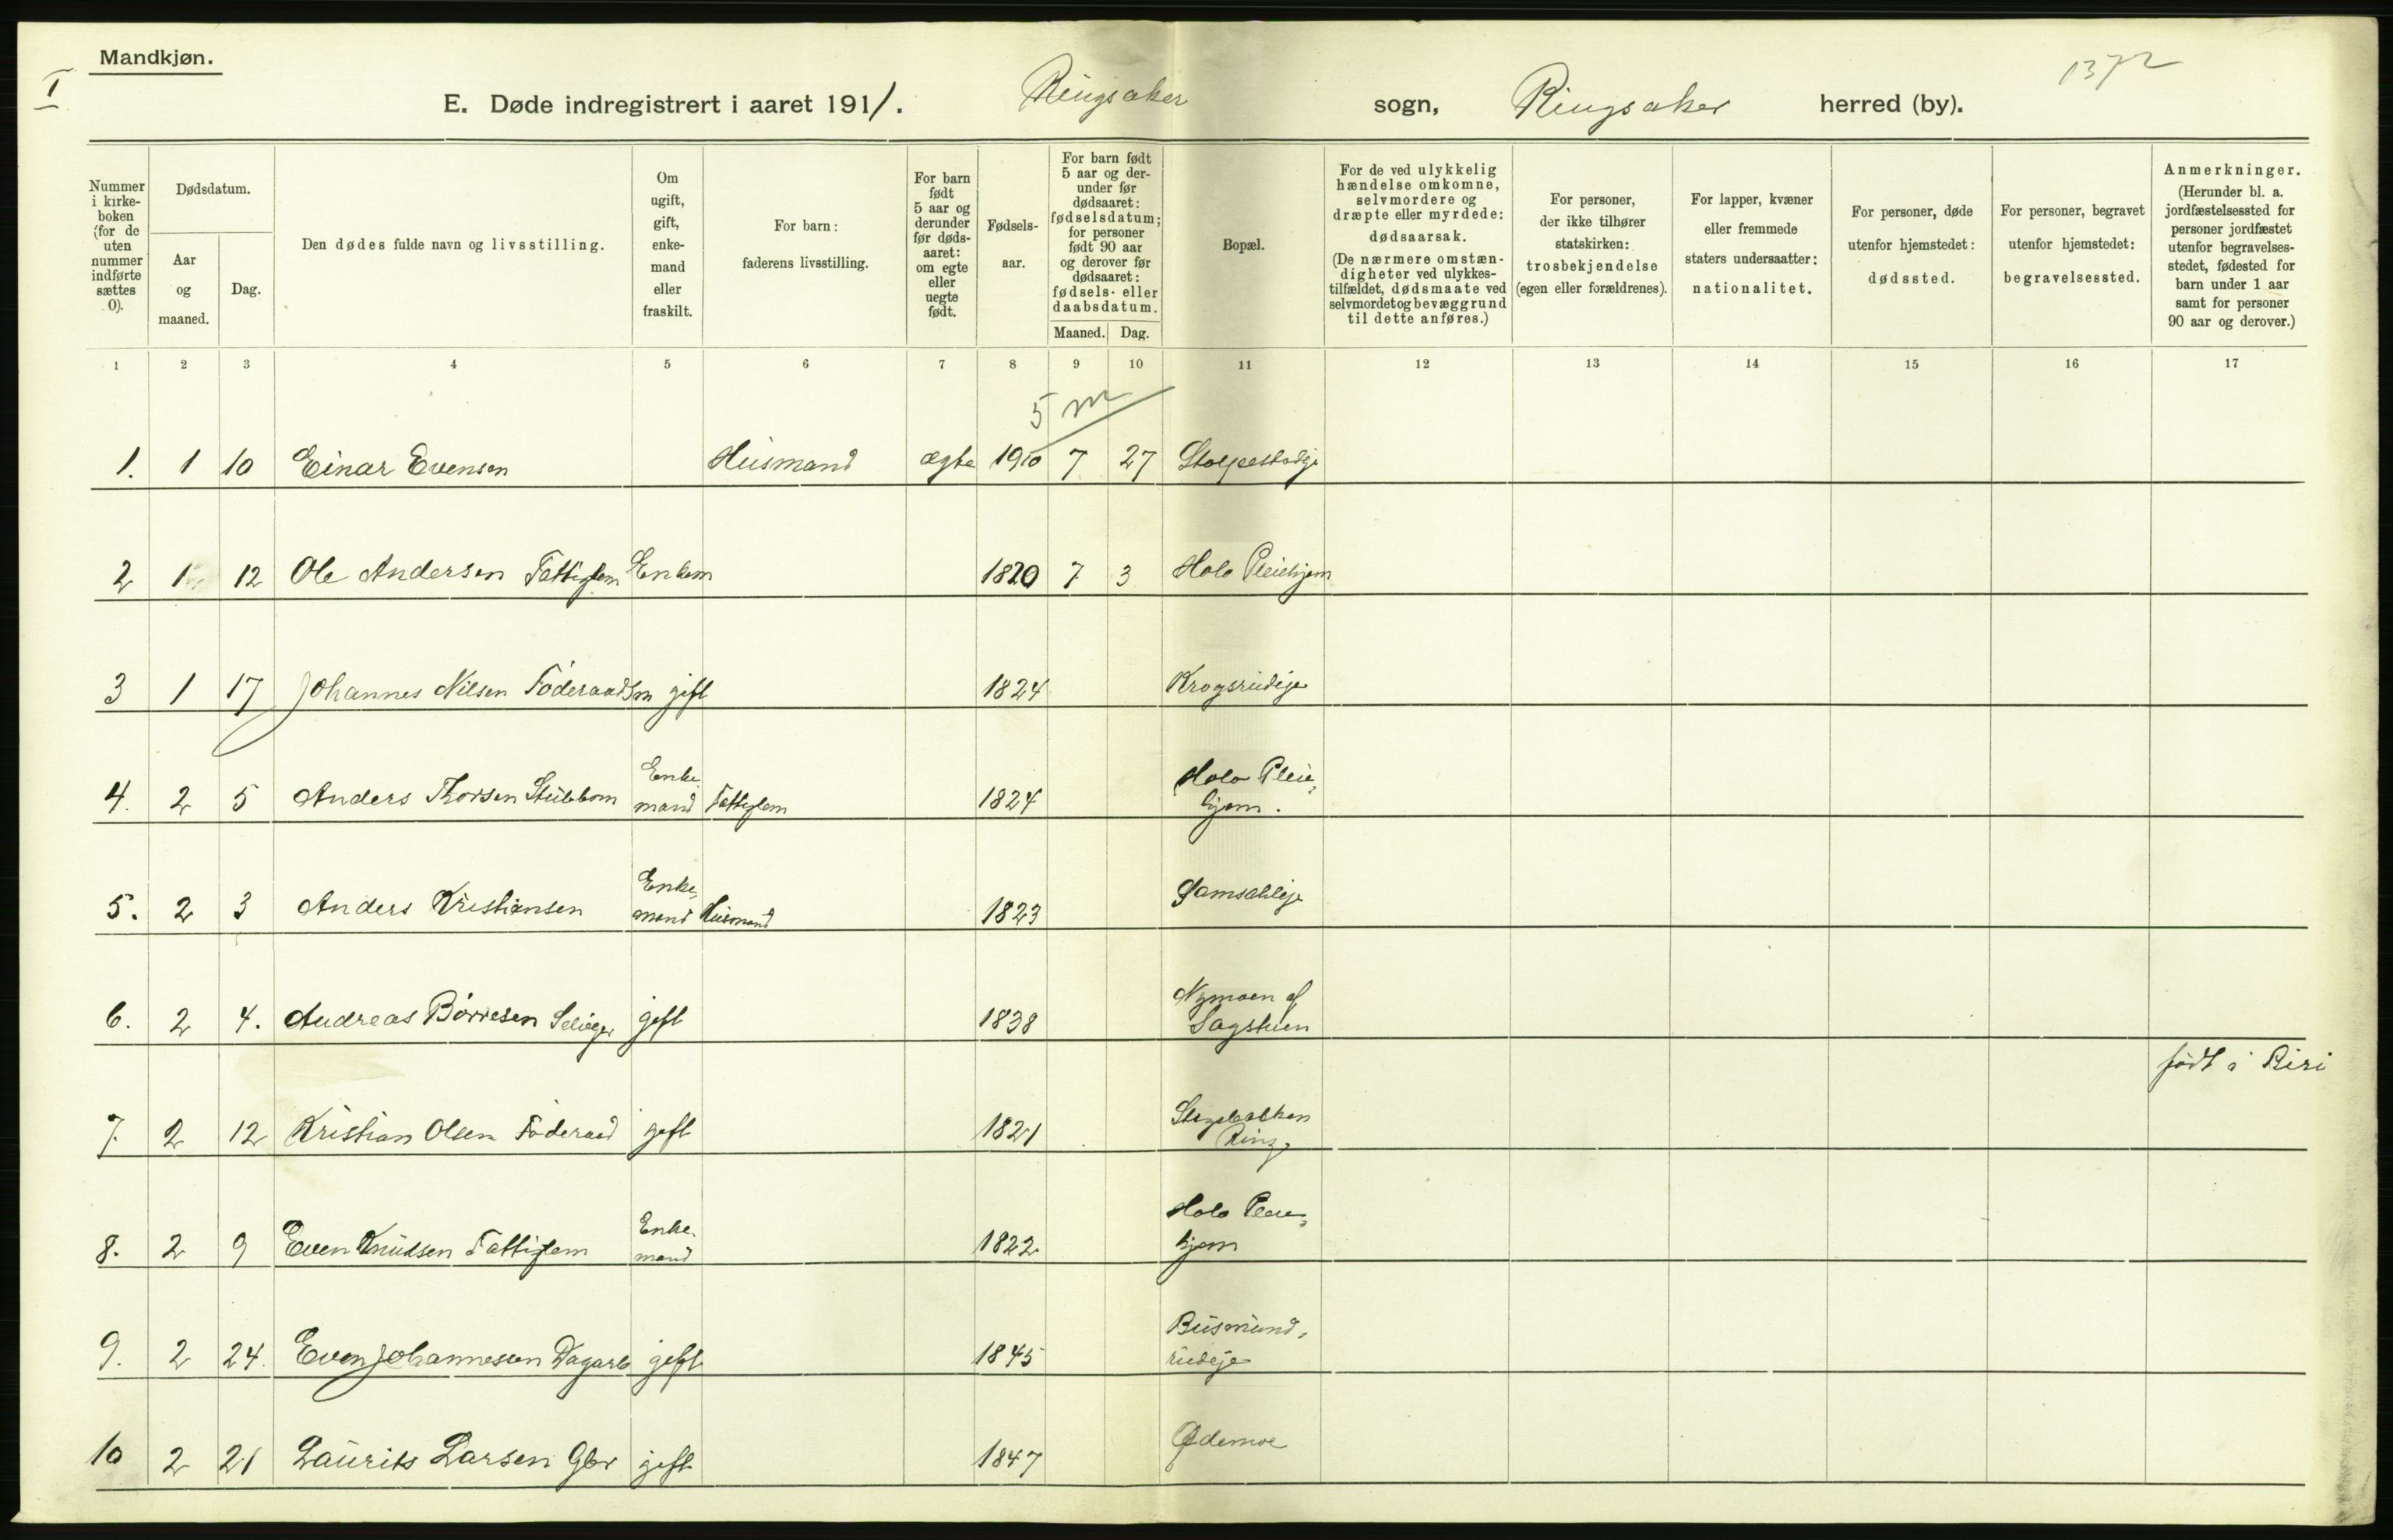 Mandkjøn.
I
1372
E. Døde indregistrert i aaret 1911. Ringsaker sogn, Ringsaker herred (by).
Nummer i kirke-boken (for de uten nummer indførte sættes 0).
Dødsdatum.
Aar og maaned.
Dag.
Den dødes fulde navn og livsstilling.
Om ugift, gift, enke-mand eller fraskilt.
For barn: faderens livsstilling.
For barn født 5 aar og derunder før døds-aaret: om egte eller uegte født.
Fødsels-aar.
For barn født 5 aar og der-under før dødsaaret: fødselsdatum; for personer født 90 aar og derover før dødsaaret: fødsels- eller daabsdatum.
Maaned. Dag.
Bopæl.
For de ved ulykkelig hændelse omkomne, selvmordere og dræpte eller myrdede: dødsaarsak. (De nærmere omstæn-digheter ved ulykkes-tilfældet, dødsmaate ved selvmordet og bevæggrund til dette anføres.)
For personer, der ikke tilhører statskirken: trosbekjendelse (egen eller forældrenes).
For lapper, kvæner eller fremmede staters undersaatter: nationalitet.
For personer, døde utenfor hjemstedet: dødssted.
For personer, begravet utenfor hjemstedet: begravelsessted.
Anmerkninger. (Herunder bl. a. jordfæstelsessted for personer jordfæstet utenfor begravelses-stedet, fødested for barn under 1 aar samt for personer 90 aar og derover.)
1 2 3 4 5 6 7 8 9 10 11 12 13 14 15 16 17
5 m
1. 1 10 Einar Evensen Husmand ægte 1910 7 27
2 1 12 Ole Andersen Fattiglem Enkem 1820 7 3 Holo Pleiehjem
3 1 17 Johannes Nilsen Föderaadsm gift 1824 Krogsrudeje
4. 2 5 Anders Thorsen Stubbom Enke mand Fattiglem 1824 Holo Pleie hjem.
5. 2 3 Anders Kristiansen Enke mand Husmand 1823
6. 2 4. Andreas Börresen Selveger gift 1838 Nymoen af Sagstuen
födt i Biri
7. 2 12 Kristian Olsen Föderaad gift 1821 Ring
8. 2 9 Even Knudsen Fattiglem Enke mand 1822 Holo Pleie hjem
9. 2 24. Even Johannesen Dagarb gift 1845 Busmund, rudeje
10 2 21 Laurits Larsen Gbr gift 1847 Ødemoe